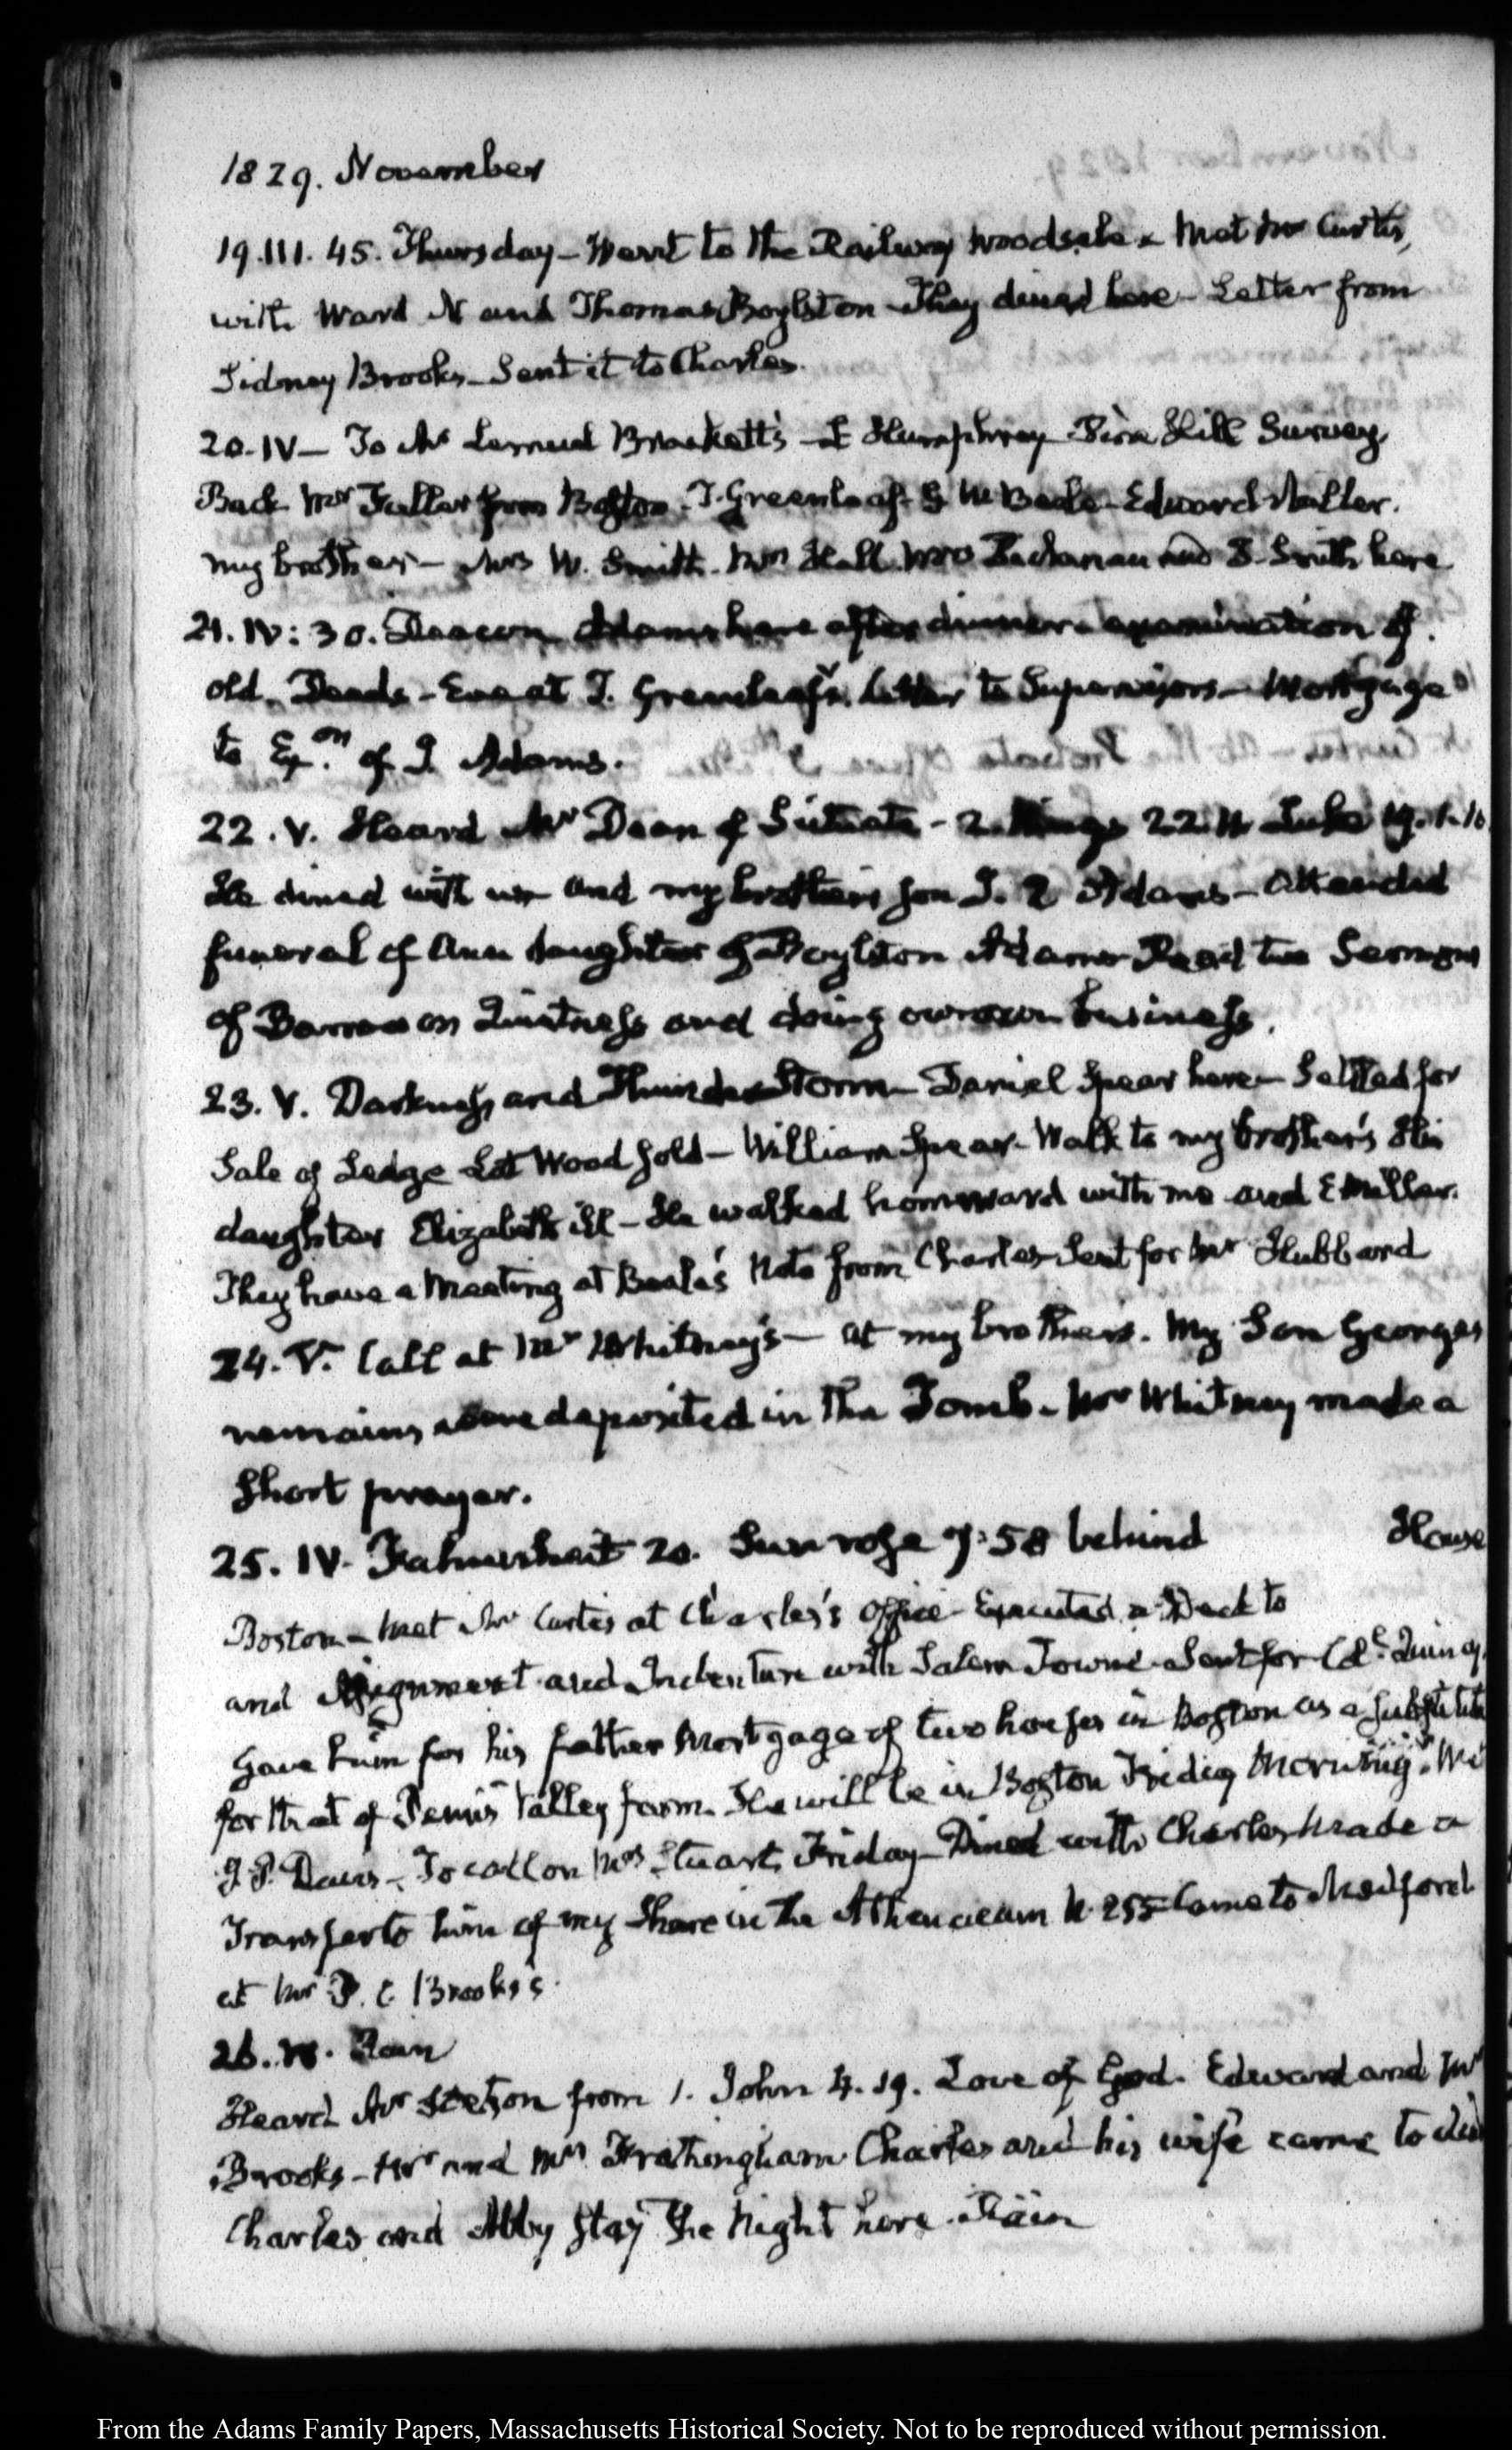 1829. November
19. III. 45. Thursday – Went to the Railway Woodsale & Met Mr Curtis,
with Ward N and Thomas Boylston – They dined here – Letter from
Sidney Brooks – Sent it to Charles.
20. IV – To Mr Lemuel Brackett's – Humphrey Hill Survey,
Back Mr Fuller from Boston – T. Greenleaf – G W Beale – Edward Miller.
my brother – Mrs W. Smith – Wm Hall Mrs Buchanan and S. Smith here
21. IV: 30. Deacon Adams here after dinner – examination of
old Deeds – Eve at T. Greenleaf's. Letter to Supervisors – Mortgage
to Exon of J. Adams.
22. V. Heard Mr Dean of Scituate – 2. Kings 22. Luke 19. 1-10
He dined with us and my brother's son J. Q Adams – Attended
funeral of Ann daughter of Boylston Adams Read two Sermons
of Barrow on Quietness and doing our own business.
23. V. Darkness and Thunder Storm – Daniel Spear here – Settled for
Sale of Ledge Lot Wood sold – William Spear – Walk to my brother's His
daughter Elizabeth ill – He walked homeward with me and E Miller.
They have a Meeting at Beale's Note from Charles Sent for Mr Hubbard
24. V. Call at Mr Whitney's – at my brother's. My Son George's
remains were deposited in the Tomb – Mr Whitney made a
short prayer.
25. IV. Fahrenheit 20. Sun rose 7:58 behind House
Boston – Met Mr Curtis at Charles's office – Executed a Deed to
and Assignment and Indenture with Salem Towne – Sent for Col. Quincy
Gave him for his father Mortgage of two houses in Boston as a substitute
for that of Penn's Valley farm. He will be in Boston Friday Morning.
J. P. Davis – To call on Mrs Stuart Friday – Dined with Charles Made a
Transfer to him of my Share in the Athenaeum N. 255 – Came to Medford
at Mr P. C Brooks's.
26. Rain
Heard Mr Stetson from 1. John 4. 19. Love of God. Edward and Mrs
Brooks – Mr and Mrs Frothingham Charles and his wife came to
Charles and Abby stay the Night here – Rain
From the Adams Family Papers, Massachusetts Historical Society. Not to be reproduced without permission.